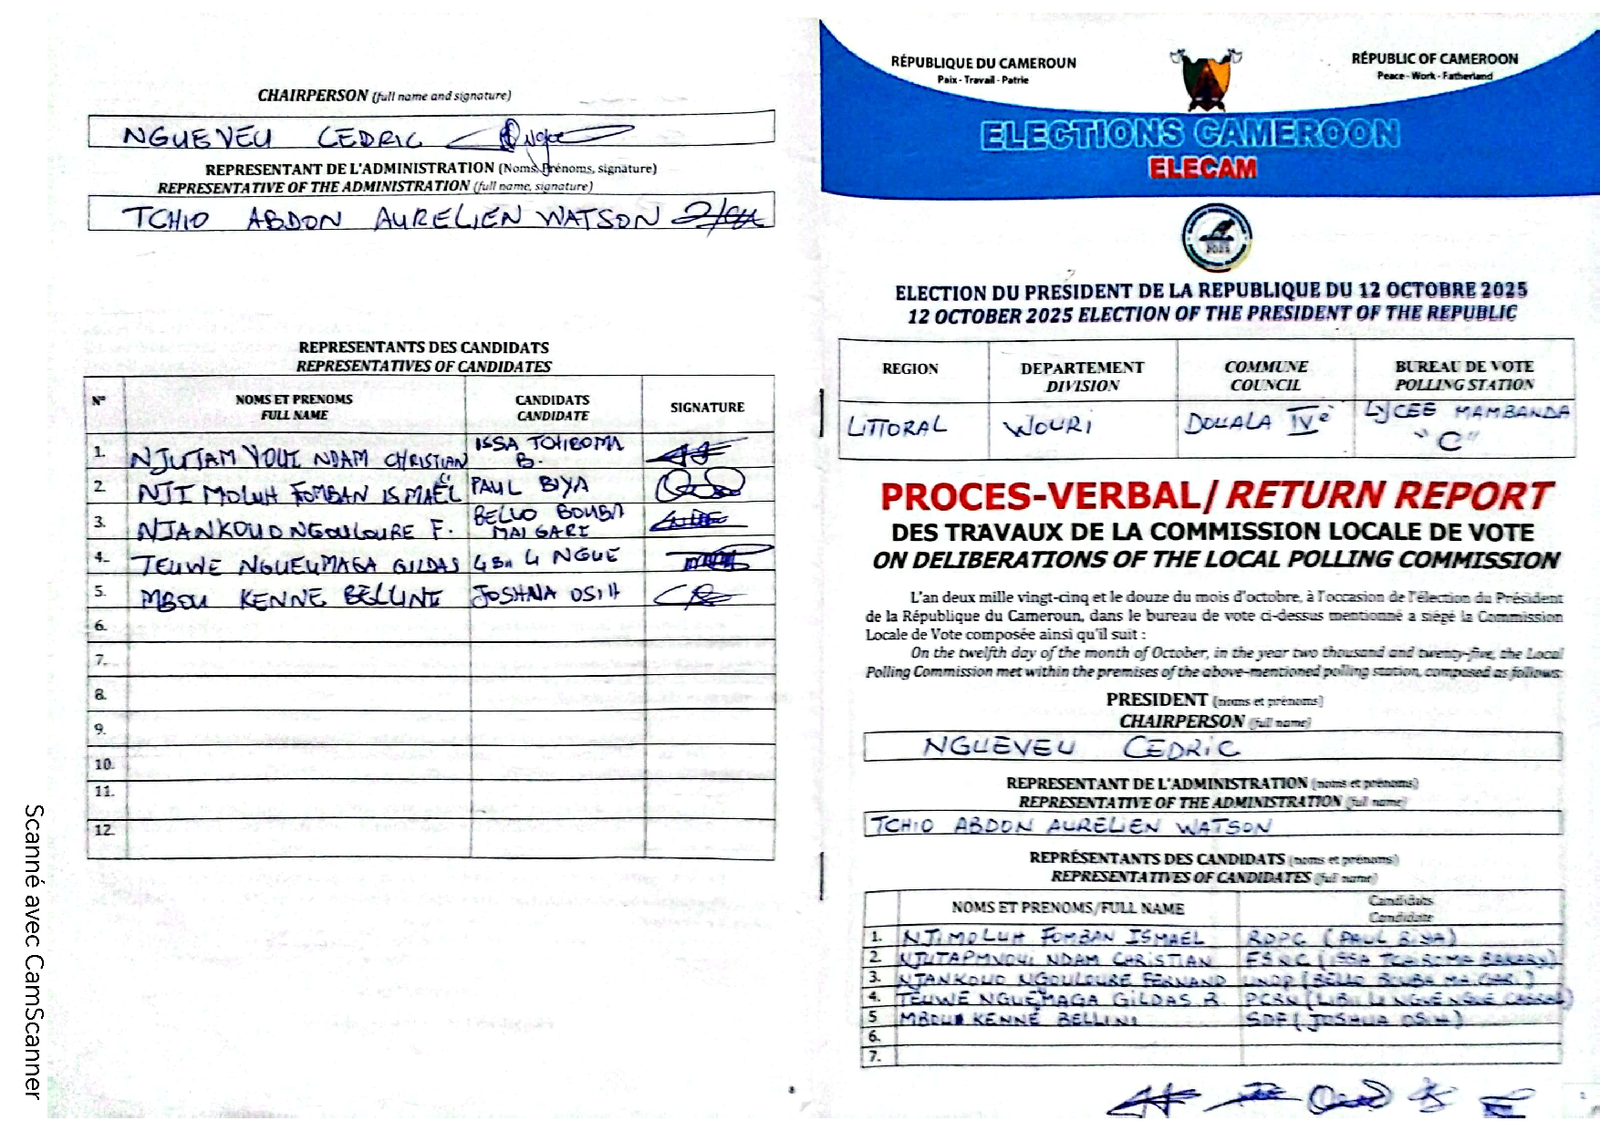 CHAIRPERSON (full name and signature)
NGUEVEU CEDRIC
REPRESENTANT DE L'ADMINISTRATION (Noms, Prénoms, signature)
REPRESENTATIVE OF THE ADMINISTRATION (full name, signature)
TCHIO ABDON AURELIEN WATSON
REPRESENTANTS DES CANDIDATS
REPRESENTATIVES OF CANDIDATES
N° NOMS ET PRENOMS CANDIDATS SIGNATURE
FULL NAME CANDIDATE
1. NJUTAM YOUI NDAM CHRISTIAN ISSA TCHIROMA B.
2. NJI MOLUH FOMBAN ISMAËL PAUL BIYA
3. NJANKOUO NGOULOURE F. BELLO BOUBA MAIGARI
4. TEUWE NGUEUMAGA GILDAS LIBII LI NGUE
5. MBOU KENNE BELLINI JOSHUA OSIH
6.
7.
8.
9.
10.
11.
12.
Scanné avec CamScanner
RÉPUBLIQUE DU CAMEROUN
Paix - Travail - Patrie
RÉPUBLIC OF CAMEROON
Peace - Work - Fatherland
ELECTIONS CAMEROON
ELECAM
2025
ELECTION DU PRÉSIDENT DE LA REPUBLIQUE DU 12 OCTOBRE 2025
12 OCTOBER 2025 ELECTION OF THE PRESIDENT OF THE REPUBLIC
REGION DEPARTEMENT COMMUNE BUREAU DE VOTE
DIVISION COUNCIL POLLING STATION
LITTORAL WOURI DOUALA IVe LYCEE MAMBANDA
"C"
PROCES-VERBAL/ RETURN REPORT
DES TRAVAUX DE LA COMMISSION LOCALE DE VOTE
ON DELIBERATIONS OF THE LOCAL POLLING COMMISSION
L'an deux mille vingt-cinq et le douze du mois d'octobre, à l'occasion de l'élection du Président
de la République du Cameroun, dans le bureau de vote ci-dessus mentionné a siégé la Commission
Locale de Vote composée ainsi qu'il suit :
On the twelfth day of the month of October, in the year two thousand and twenty-five, the Local
Polling Commission met within the premises of the above-mentioned polling station, composed as follows:
PRESIDENT (noms et prénoms)
CHAIRPERSON (full name)
NGUEVEU CEDRIC
REPRESENTANT DE L'ADMINISTRATION (noms et prénoms)
REPRESENTATIVE OF THE ADMINISTRATION (full name)
TCHIO ABDON AURELIEN WATSON
REPRÉSENTANTS DES CANDIDATS (noms et prénoms)
REPRESENTATIVES OF CANDIDATES (full name)
NOMS ET PRENOMS/FULL NAME Candidats
Candidate
1. NJIMOLUH FOMBAN ISMAEL RDPC (PAUL BIYA)
2. NDAM CHRISTIAN FSNC (ISSA TCHIROMA BAKARY)
3. NJANKOUO NGOULOURE FERNAND UNDP (BELLO BOUBA MAIGARI)
4. TEUWE NGUEMAGA GILDAS R. PCRN
5 MBOU KENNE BELLINI SDF (JOSHUA OSIH)
6.
7.